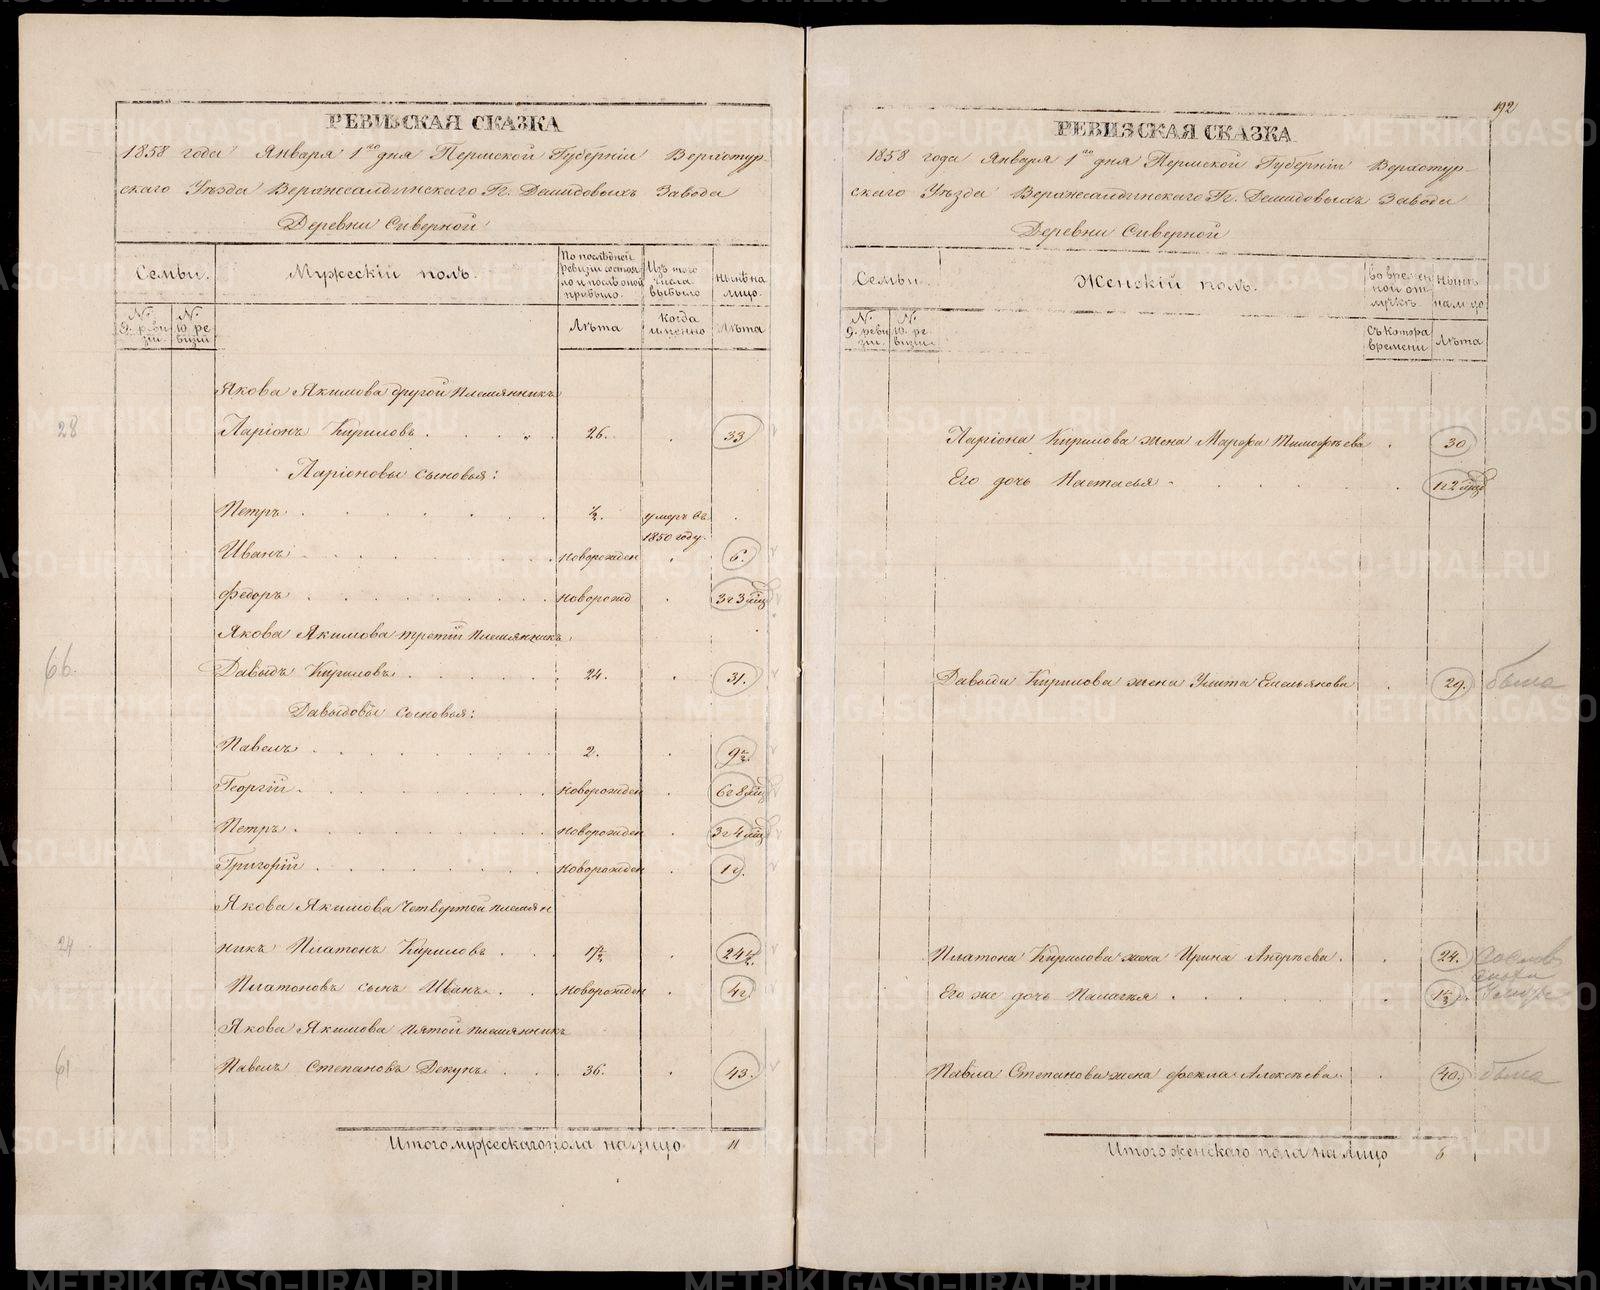 РЕВИЗСКАЯ СКАЗКА
1858 года Января 1го дня Пермской Губерніи Верхотур-
скаго Уѣзда Верхнесалдинскаго Гг. Демидовыхъ Завода
Деревни Сиверной
Семьи. Мужескій полъ. По послѣдней ревизіи состояло и послѣ оной прибыло. Изъ того числа выбыло Нынѣ на лицо.
№ 9. ревизіи. № 10 ревизіи Лѣта Когда именно Лѣта
Якова Якимова другой племянникъ
28 Ларіонъ Кириловъ 26. 33
Ларіоновы сыновья:
Петръ ½. умеръ въ 1850 году.
Иванъ новорожден 6.
Федоръ новорожд 3 г 3 мѣц
Якова Якимова третій племянникъ
66. Давыдъ Кириловъ 24. 31.
Давыдовы сыновья:
Павелъ 2. 9½.
Георгій новорожден 6 г 8 мѣц
Петръ новорожден 3 г 4 мѣц
Григорій новорожден 1 г.
Якова Якимова четвертой племян
24 никъ Платонъ Кириловъ 17½ 24½.
Платоновъ сынъ Иванъ новорожден 4 г
Якова Якимова пятой племянникъ
61 Павелъ Степановъ Декунъ 36. 43.
Итого мужескаго пола на лицо 11
192
РЕВИЗСКАЯ СКАЗКА
1858 года Января 1го дня Пермской Губерніи Верхотур-
скаго Уѣзда Верхнесалдинскаго Гг. Демидовыхъ Завода
Деревни Сиверной
Семьи. Женскій полъ. Во временной отлучкѣ. Нынѣ на лицо
№ 9. ревизіи. № 10. ревизіи. Съ котора времени Лѣта
Ларіона Кирилова жена Марфа Тимофѣева 30
Его дочь Настасья 1 г 2 мѣц
Давыда Кирилова жена Улита Емельянова 29. была
Платона Кирилова жена Ирина Андрѣева. 24.
Его же дочь Палагья 1⅔.
Павла Степанова жена Фекла Алексѣева 40. была
Итого женскаго пола на лицо 6
METRIKI.GASO-URAL.RU